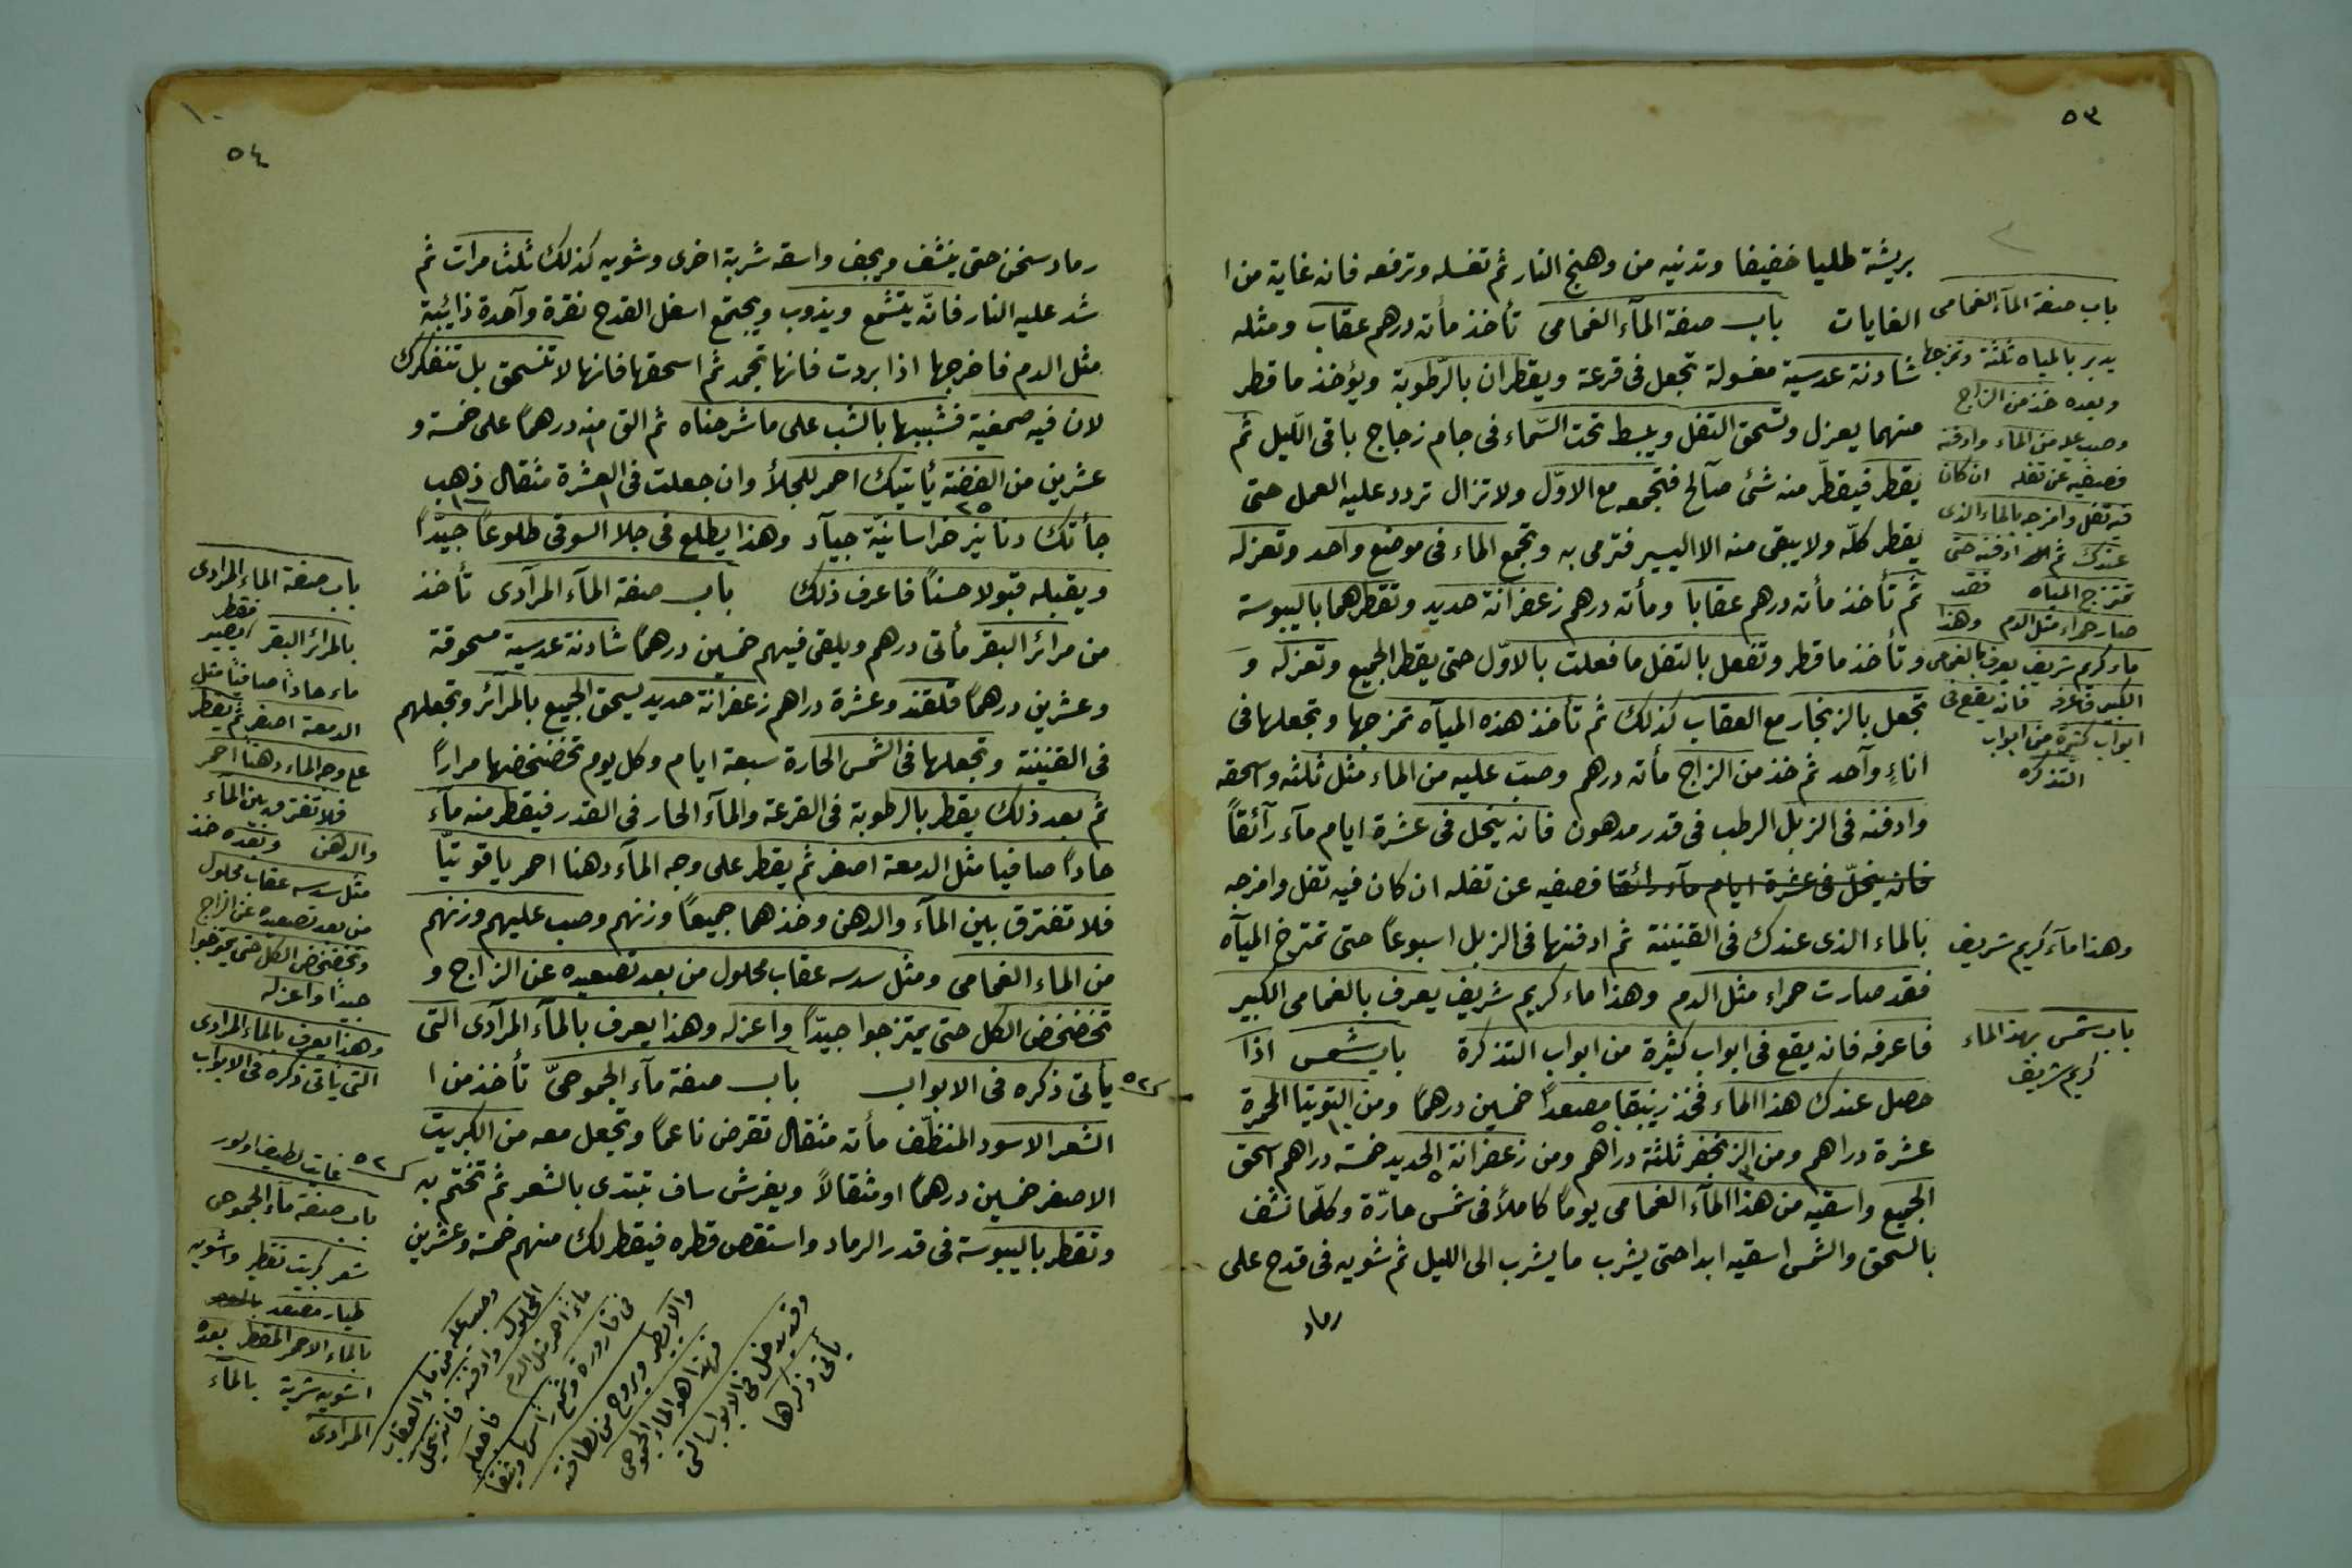 ٥٣
بريشة طليا خفيفا وتدنيه من وهنج النار ثم تغسله وترفعه فانه غاية من ا
الغايات باب صفة المآء الغمامى تأخذ مأته درهم عقاب ومثله
شادنة عدسية مغسولة تجعل فى قرعة ويقطران بالرّطوبة ويؤخذ ما قطر
منهما يعزل وتسحق التفل ويبسط تحت السّماء فى جام زجاج باقى اللّيل ثم
يقطر فيقطّر منه شئ صآلح فتجمعه مع الاوّل ولا تزال تردد عليه العمل حتى
يقطر كلّه ولا يبقى منه الا اليسير فترمى به وتجمع الماء فى موضع واحد وتعزله
ثم تأخذ مأته درهم عقابا ومأته درهم زعفرانة حديد وتقطرهما باليبوسة
وتأخذ ما قطر وتفعل بالتفل ما فعلت بالاوّل حتى يقطر الجميع وتعزله و
تجعل بالزنجار مع العقاب كذلك ثم تأخذ هذه الميآه تمزجها وتجعلها فى
اناءٍ وآحد ثم خذ من الزاج مأته درهم وصبّ عليه من الماء مثل ثلثه واسحقه
وادفنه فى الزبل الرطب فى قدر مدهون فانه ينحل فى عشرة ايام مآء رآئقاً
فانه ينحلّ فى عشرة ايام مآء رائقا فصفيه عن تفله ان كان فيه تفل وامزجه
بالماء الذى عندك فى القنينة ثم ادفنها فى الزبل اسبوعاً حتى تمتزج الميآه
فقد صارت حمراء مثل الدم وهذا ماء كريم شريف يعرف بالغمامى الكبير
فاعرفه فانه يقع فى ابواب كثيرة من ابواب التذكرة باب شمس اذا
حصل عندك هذا الماء فخذ زيبقا مصعداً خمسين درهمًا ومن التوتيا المحمرة
عشرة دراهم ومن الزنجفر ثلثة دراهم ومن زعفرانة الحديد خمسة دراهم اسحق
الجميع واسقيه من هذا المآء الغمامى يومًا كاملاً فى شمس حارّة وكلّما نشف
بالسحق والشمس اسقيه ابدا حتى يشرب ما يشرب الى الليل ثم شويه فى قدح على
رماد
باب صفة المآء الغمامى
يدبر بالمياه ثلثة وتمزجها
وبعده خذ من الزاج
وصب عليه من الماء وادفنه
فصفيه عن تفله ان كان
فيه تفل وامزجه بالماء الذى
عندك ثم ادفنه حتى
تمتزج المياه فقد
صار حمراء مثل الدم وهذا
ماء كريم شريف يعرف بالغمامى
الكبير فاعرفه فانه يقع فى
ابواب كثيرة من ابواب
التذكره
وهذا مآء كريم شريف
باب شمس بهذا الماء
كريم شريف
٥٤
رماد سخن حتى ينشف ويجف واسقه شربة اخرى وشويه كذلك ثلث مرات ثم
شد عليه النار فانّه يتشمع ويذوب ويجتمع اسفل القدح نقرة وآحدة ذائبة
مثل الدم فاخرجها اذا بردت فانها تجمد ثم اسحقها فانها لا تنسحق بل تتفكرك
لان فيه صمغية فشببها بالشب على ما شرحناه ثم الق منه درهمًا على خمسة و
عشرين من الفضة يأتيك احمر للجلأ وان جعلت فى العشرة مثقال ذهب
جأتك دنانيز خراسانيّة جيآد وهذا يطلع فى جلا السوقى طلوعًا جيّداً
ويقبله قبولا حسنًا فاعرف ذلك باب صفة المآء المرآدى تأخذ
من مرائر البقر مأتى درهم ويلقى فيهم خمسين درهمًا شادنة عدسية مسحوقة
وعشرين درهمًا قلقند وعشرة دراهم زعفرانة حديد يسحق الجميع بالمرآئر وتجعلهم
فى القنينة وتجعلها فى الشمس الحارة سبعة ايام وكل يوم تخضخضها مراراً
ثم بعد ذلك يقطر بالرطوبة فى القرعة والمآء الحار فى القدر فيقطر منه مآء
حاداً صافيا مثل الدمعة اصفر ثم يقطر على وجه المآء دهنا احمر ياقوتيّا
فلا تفترق بين المآء والدهن وخذهما جميعاً وزنهم وصب عليهم وزنهم
من الماء الغمامى ومثل سدسه عقاب محلول من بعد تصعيده عن الزاج و
تخضخض الكل حتى يمتزجوا جيّداً واعزله وهذا يعرف بالمآء المرآدى التى
يأتى ذكره فى الابواب باب صفة مآء الجموحىّ تأخذ من ا
الشعر الاسود المنظّف مأته مثقال تقرض ناعمًا وتجعل معه من الكبريت
الاصفر خمسين درهمًا او مثقالاً ويفرش ساف تبتدى بالشعر ثم تختم به
وتقطر باليبوسة فى قدر الرماد واستقص قطره فيقطر لك منهم خمسة وعشرين
باب صفة الماء المرادى
بالمرائر البقر فقطر يصير
ماء حادًا صافيًا مثل
الدمعة اصفر ثم يقطر
على وجه الماء دهنا احمر
فلا تفترق بين المآء
والدهن وبعده خذ
مثل سدسه عقاب محلول
من بعد تصعيده عن الزاج
وتخضخض الكل حتى يمتزجوا
جيداً واعزله
وهذا يعرف بالماء المرادى
التى يأتى ذكره فى الابواب
٥٢
باب صفة مآء الجموحى
شعر كبريت تقطير واشويه
طيار مصعد
بالماء الاحمر المقطر بعده
اشويه شربة بالمآء
المرادى
وصب عليه من ماء العقاب
المحلول وادفنه فانه ينحل
ماء احمر مثل الدم فاجعله
فى قارورة وشمع راسها وثيقا
والا يطير ويروح من لطافته
فهذا هو الماء الجموحى
وقد يدخل فى الابواب التى
يأتى ذكرها